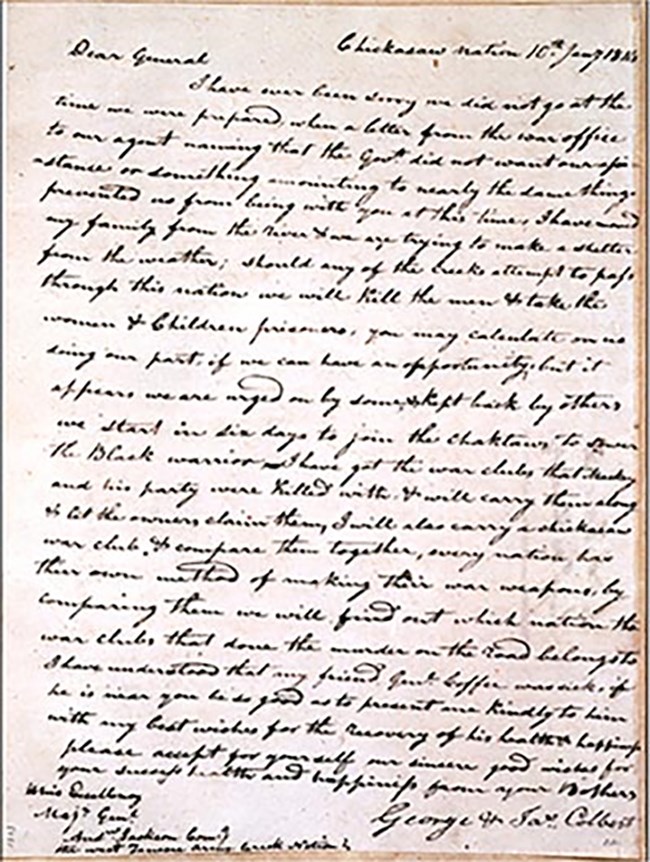 Chickasaw Nation 10th Jany 1814
Dear General
I have ever been sorry we did not go at the
time we were prepared when a letter from the war office
to our agent naming that the Govt. did not want our
stance or something amounting to nearly the same thing
prevented us from being with you at this time, I have
my family from the river & we are trying to make a shelter
from the weather; should any of the creeks attempt to pass
through this nation we will kill the men & take the
women & Children prisoners, you may calculate on us
doing our part, if we can have an opportunity, but it
appears we are urged on by some, & kept back by others
we start in six days to join the chaktaws to
the Black warrior I have got the war clubs that
and his party were killed with & will carry them along
& let the owners claim them, I will also carry a chickasaw
war club, & compare them together, every nation has
their own method of making their war weapons, by
comparing them we will find out which nation the
war clubs that done the murder on the road belongs to
I have understood that my friend Genl. Coffee was sick, if
he is near you be so good as to present me kindly to him
with my best wishes for the recovery of his health & happiness
please accept for yourself our sincere good wishes for
your success health and happiness from your Brothers
George & Jas. Colbert
His Excellency
Majr Genl
Andw Jackson Comg
the west Tennessee army Creek Nation